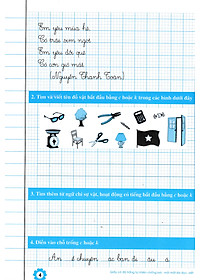 Em yêu mùa hè
Có trâu xem ngót
Em yêu đời quê
Có cơn gió mát
(Nguyễn Thanh Toàn)
2. Tìm và viết tên đồ vật bắt đầu bằng c hoặc k trong các hình dưới đây
3. Tìm thêm từ ngữ chỉ sự vật, hoạt động có tiếng bắt đầu bằng c hoặc k
4. Điền vào chỗ trống c hoặc k
An ể chuyện ác bạn đi
4